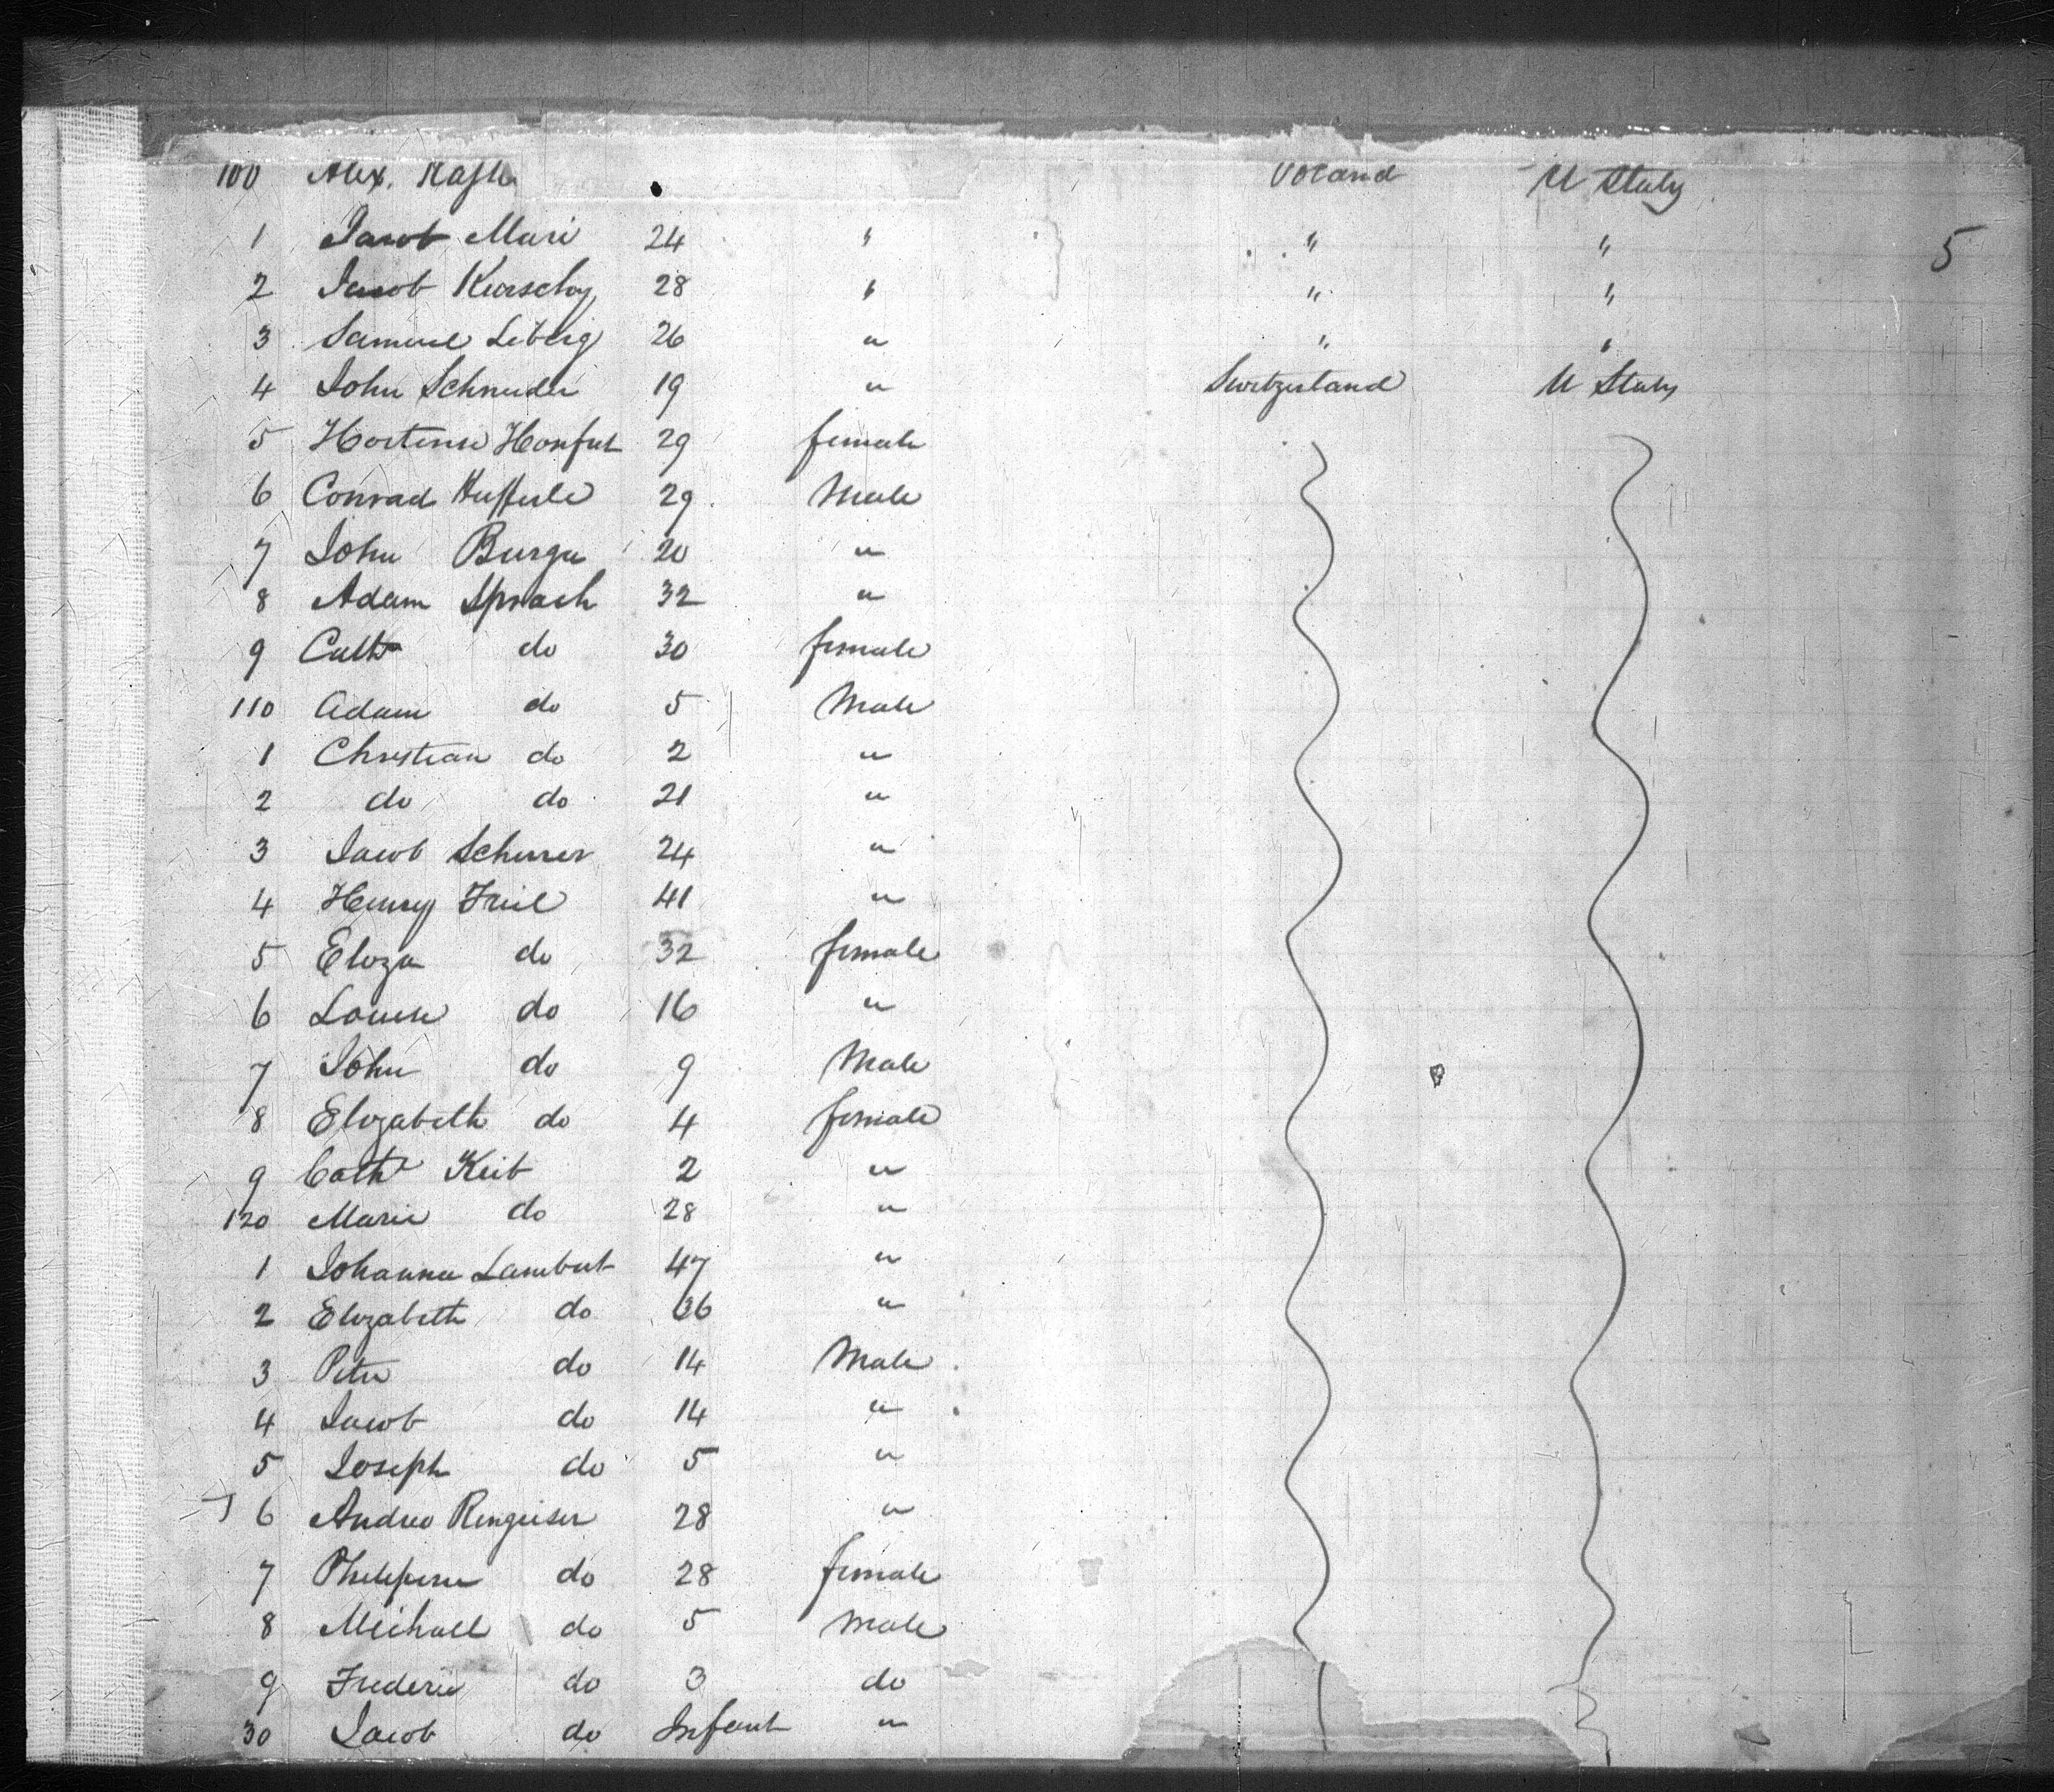 100 Alex. U States
1 Jacob Mari 24 " " " 5
2 Jacob 28 " " "
3 Samuel Leberig 26 " " "
4 John Schneider 19 " Switzerland U States
5 Hortense 29 female
6 Conrad 29 Male
7 John Burger 20 "
8 Adam Sprach 32 "
9 Cath do 30 female
110 Adam do 5 Male
1 Christian do 2 "
2 do do 21 "
3 Jacob Scherrer 24 "
4 Henry 41 "
5 Eliza do 32 female
6 Louise do 16 "
7 John do 9 Male
8 Elizabeth do 4 female
9 Cath Keib 2 "
120 Marie do 28 "
1 Johanna Lambert 47 "
2 Elizabeth do 36 "
3 Peter do 14 Male
4 Jacob do 14 "
5 Joseph do 5 "
6 Andreo Ringeiser 28 "
7 Philipine do 28 female
8 Michael do 5 Male
9 Frederic do 3 do
30 Jacob do Infant "